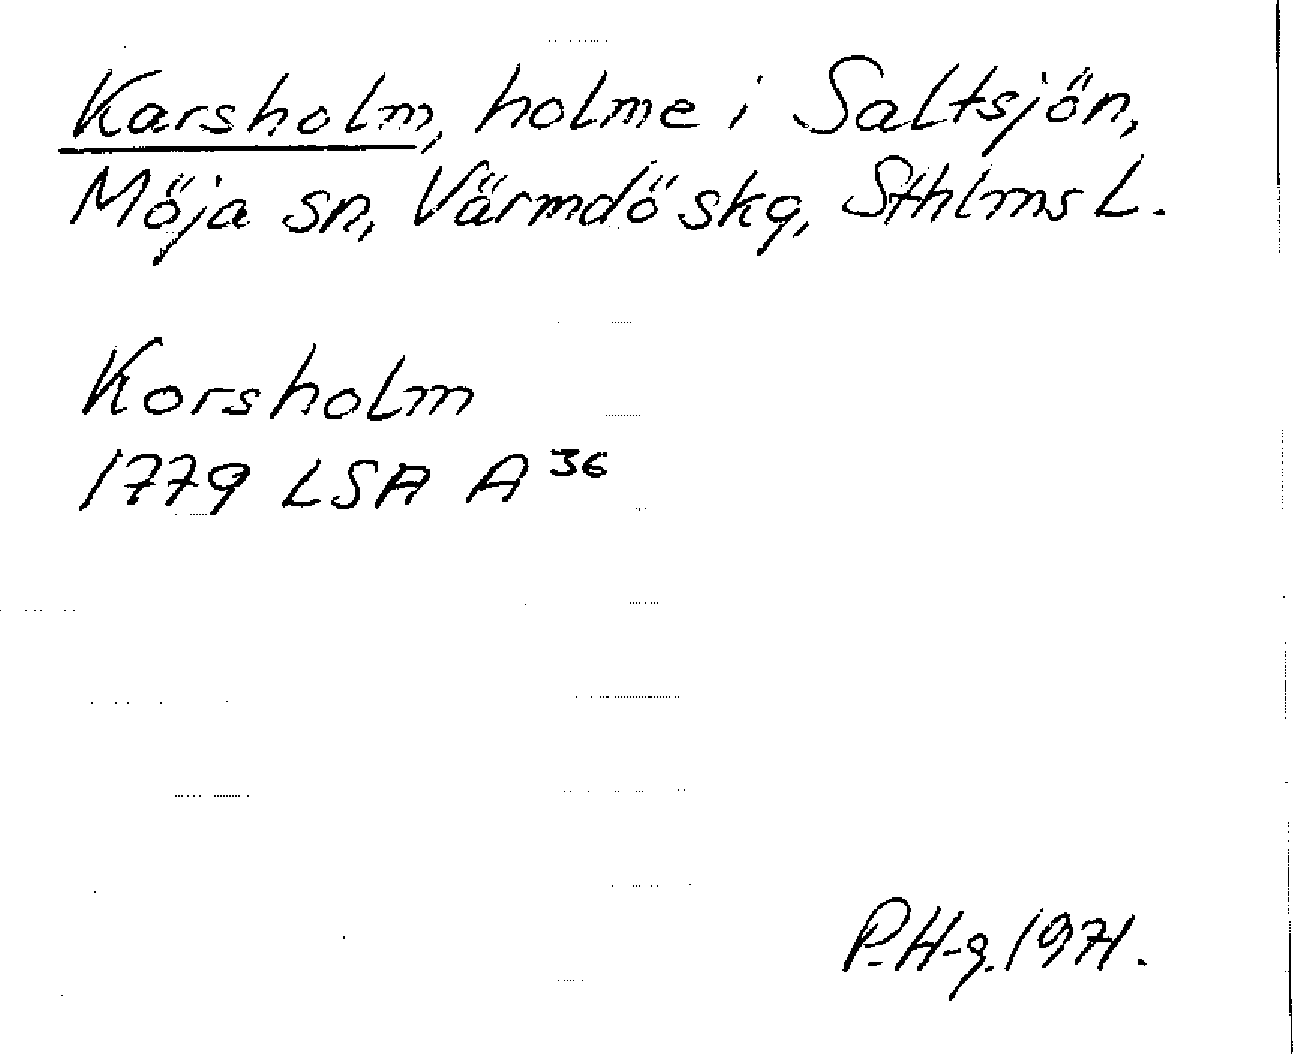 Karsholm, holme i Saltsjön,
Möja sn, Värmdö skg, Sthlms L.
Korsholm
1779 LSA A 36
P. H-g. 1971.